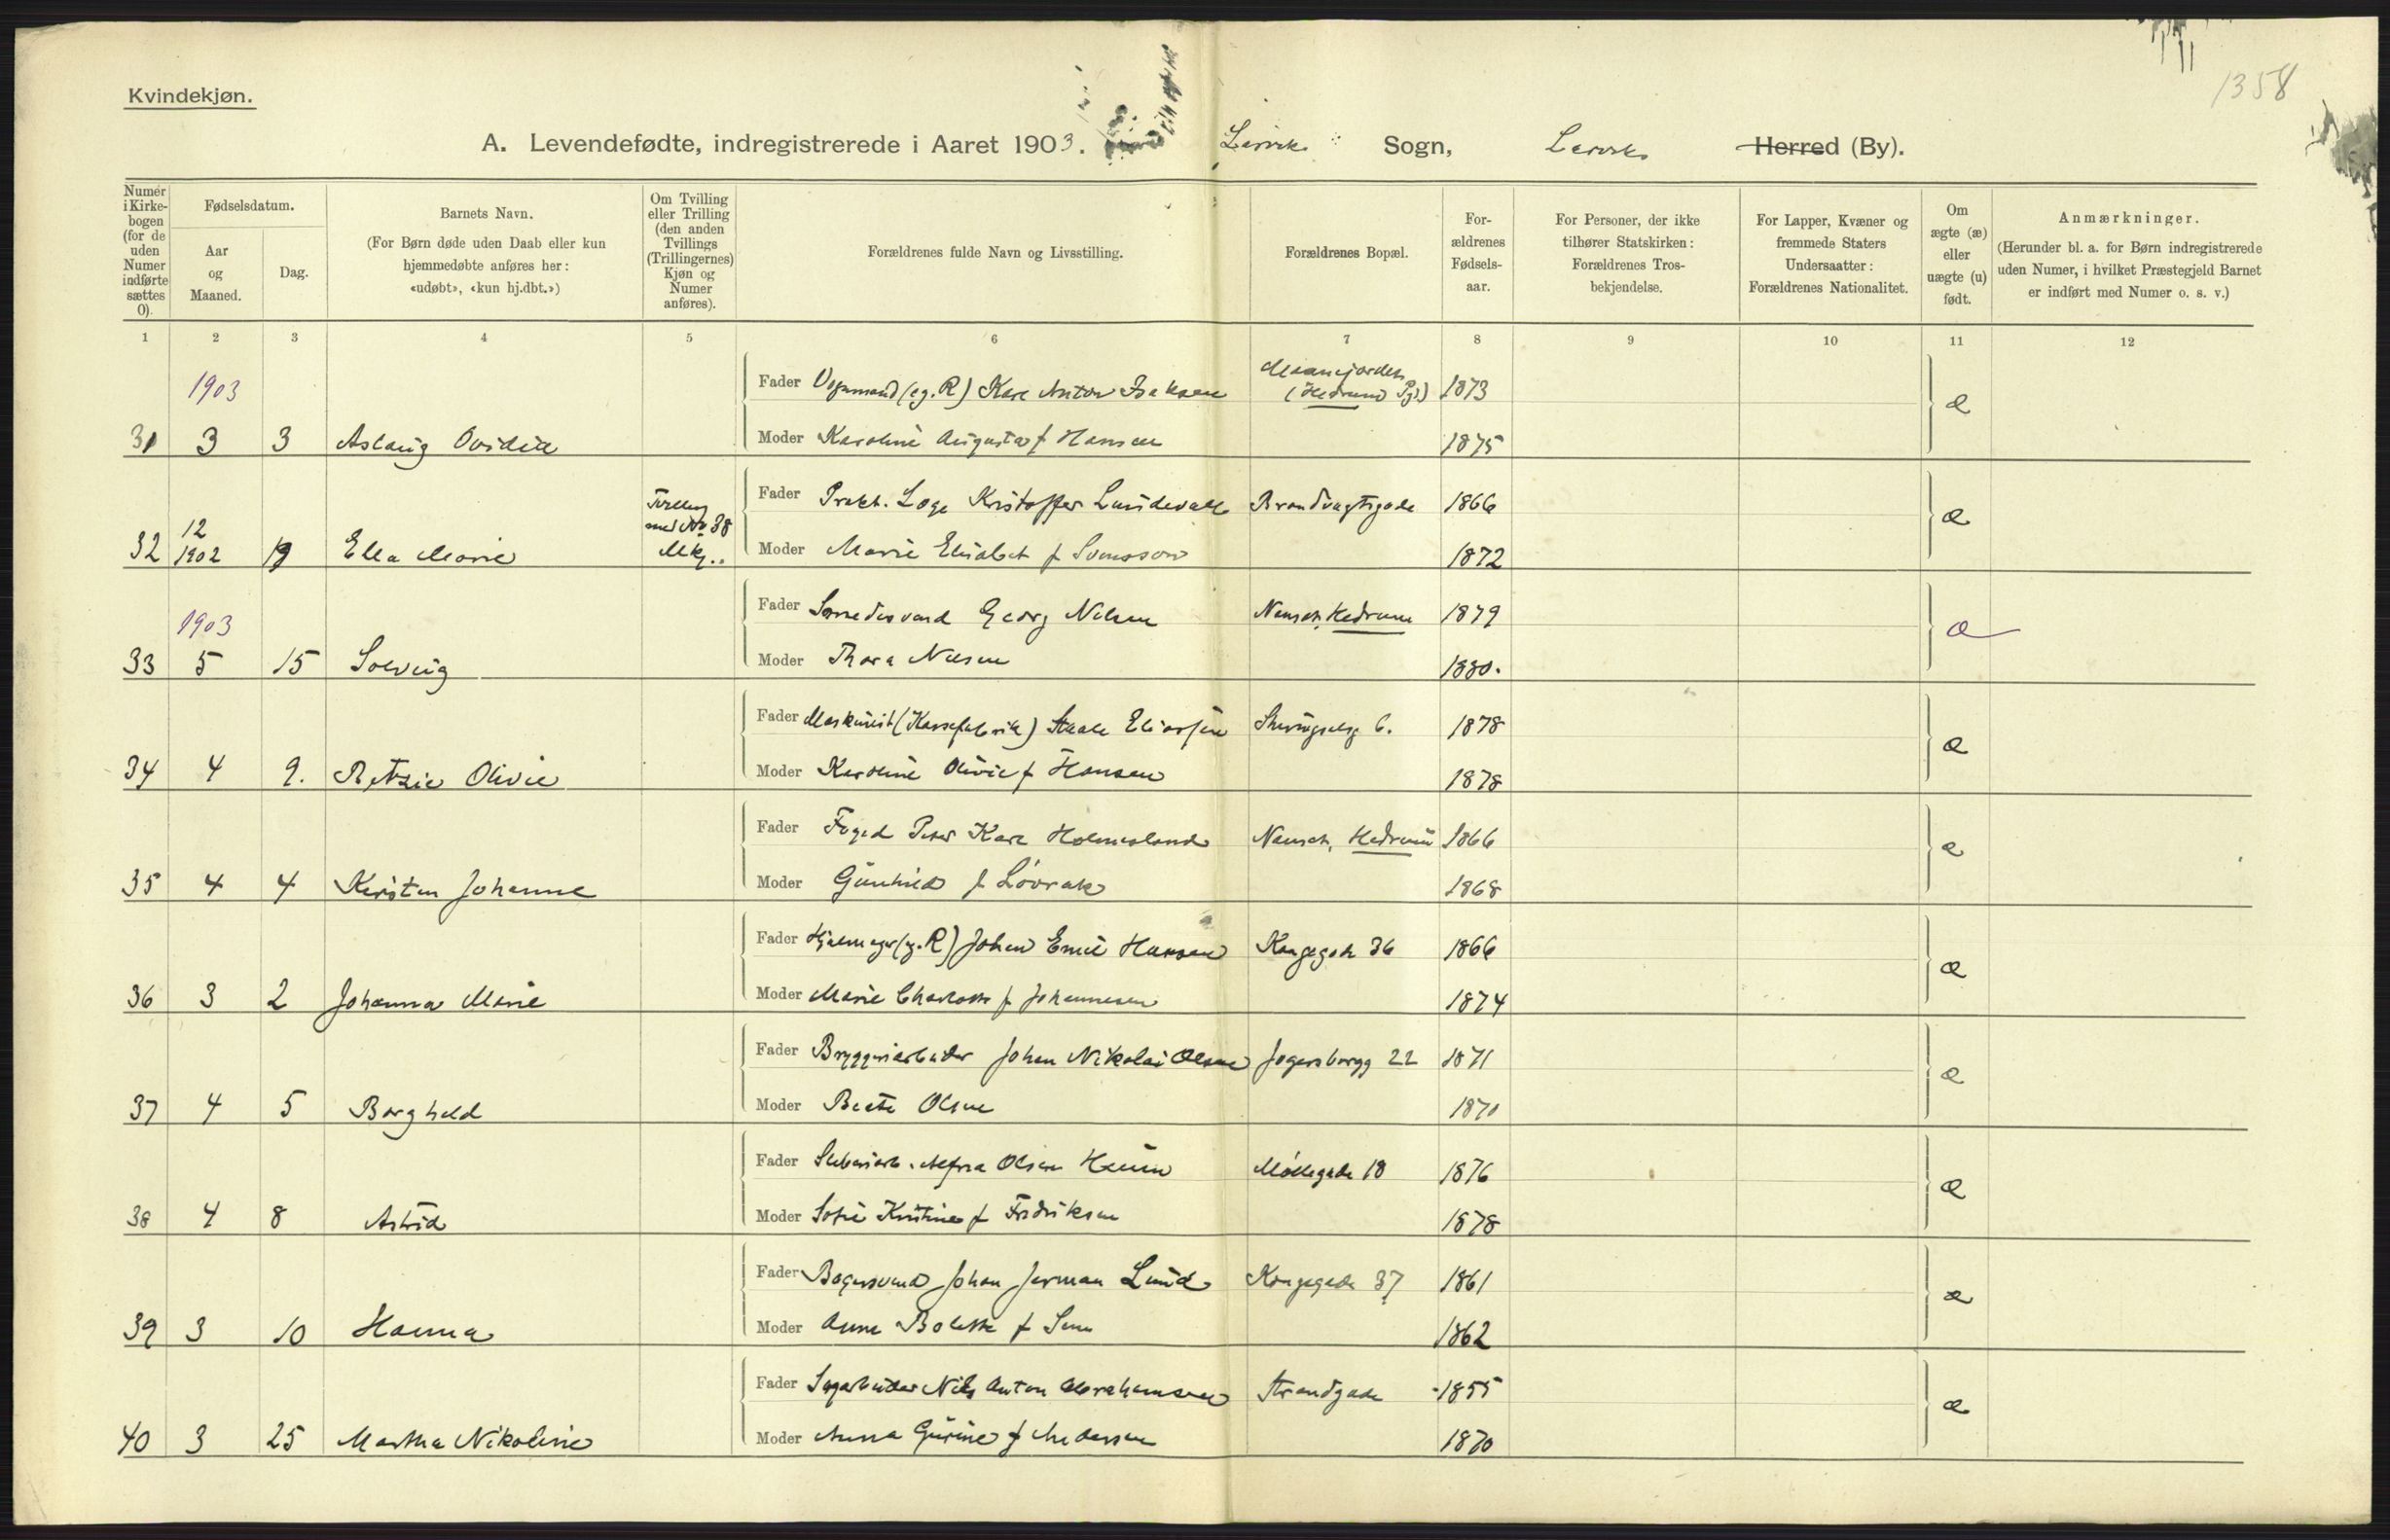 1358
Kvindekjøn.
A. Levendefødte, indregistrerede i Aaret 1903. Larviks Sogn, Larviks Herred (By).
Numer i Kirke-bogen (for de uden Numer indførte sættes 0).
Fødselsdatum.
Aar og Maaned.
Dag.
Barnets Navn.
(For Børn døde uden Daab eller kun hjemmedøbte anføres her: «udøbt», «kun hj.dbt.»)
Om Tvilling eller Trilling (den anden Tvillings (Trillingernes) Kjøn og Numer anføres).
Forældrenes fulde Navn og Livsstilling.
Forældrenes Bopæl.
For-ældrenes Fødsels-aar.
For Personer, der ikke tilhører Statskirken: Forældrenes Tros-bekjendelse.
For Lapper, Kvæner og fremmede Staters Undersaatter: Forældrenes Nationalitet.
Om ægte (æ) eller uægte (u) født.
Anmærkninger.
(Herunder bl. a. for Børn indregistrerede uden Numer, i hvilket Præstegjeld Barnet er indført med Numer o. s. v.)
1 2 3 4 5 6 7 8 9 10 11 12
1903
Fader Vognmand (eg. R) Karl Anton Isaksen (Hedrum Pgj) 1873 æ
31 3 3 Aslaug Ovidia Moder Karoline Augusta f Hansen 1875
Tvilling med No 38 Mkj.
Fader Prakt. Læge Kristoffer Lundevall Brandvagtsgade 1866 æ
32 12 1902 19 Ella Marie Moder Marie Elisabet f Svensson 1872
1903
Fader Smedesvend Georg Nilsen Nanset, Hedrum 1879 æ
33 5 15 Solveig Moder Thora Nilsen 1880.
Fader Maskinist (Kassefabrik) Staale Eliassen 6. 1878 æ
34 4 9. Betzie Olivie Moder Karoline Olivie f Hansen 1878
Fader Foged Peter Karl Holmesland Nanset, Hedrum 1866 æ
35 4 4 Kirsten Johanne Moder Gunhild f Lövrak 1868
Fader Hjulmager (eg. R) Johan Emil Hansen Kongegade 36 1866 æ
36 3 2 Johanna Marie Moder Marie Charlotte f Johannesen 1874
Fader Bryggeriarbeider Johan Nikolai Olsen Jegersborgg 22 1871 æ
37 4 5 Borghild Moder Beate Olsen 1870
Fader Sliberiarb. Alfred Olsen Møllegade 18 1876 æ
38 4 8 Astrid Moder Sofie Kristine f Fredriksen 1878
Fader Bagersvend Johan Jerman Lund Kongegade 37 1861 æ
39 3 10 Hanna Moder Anne Bolette f 1862
Fader Sagarbeider Nils Anton Abrahamsen Strandgade 1855 æ
40 3 25 Martha Nikoline Moder Anna Gurine f Andersen 1870